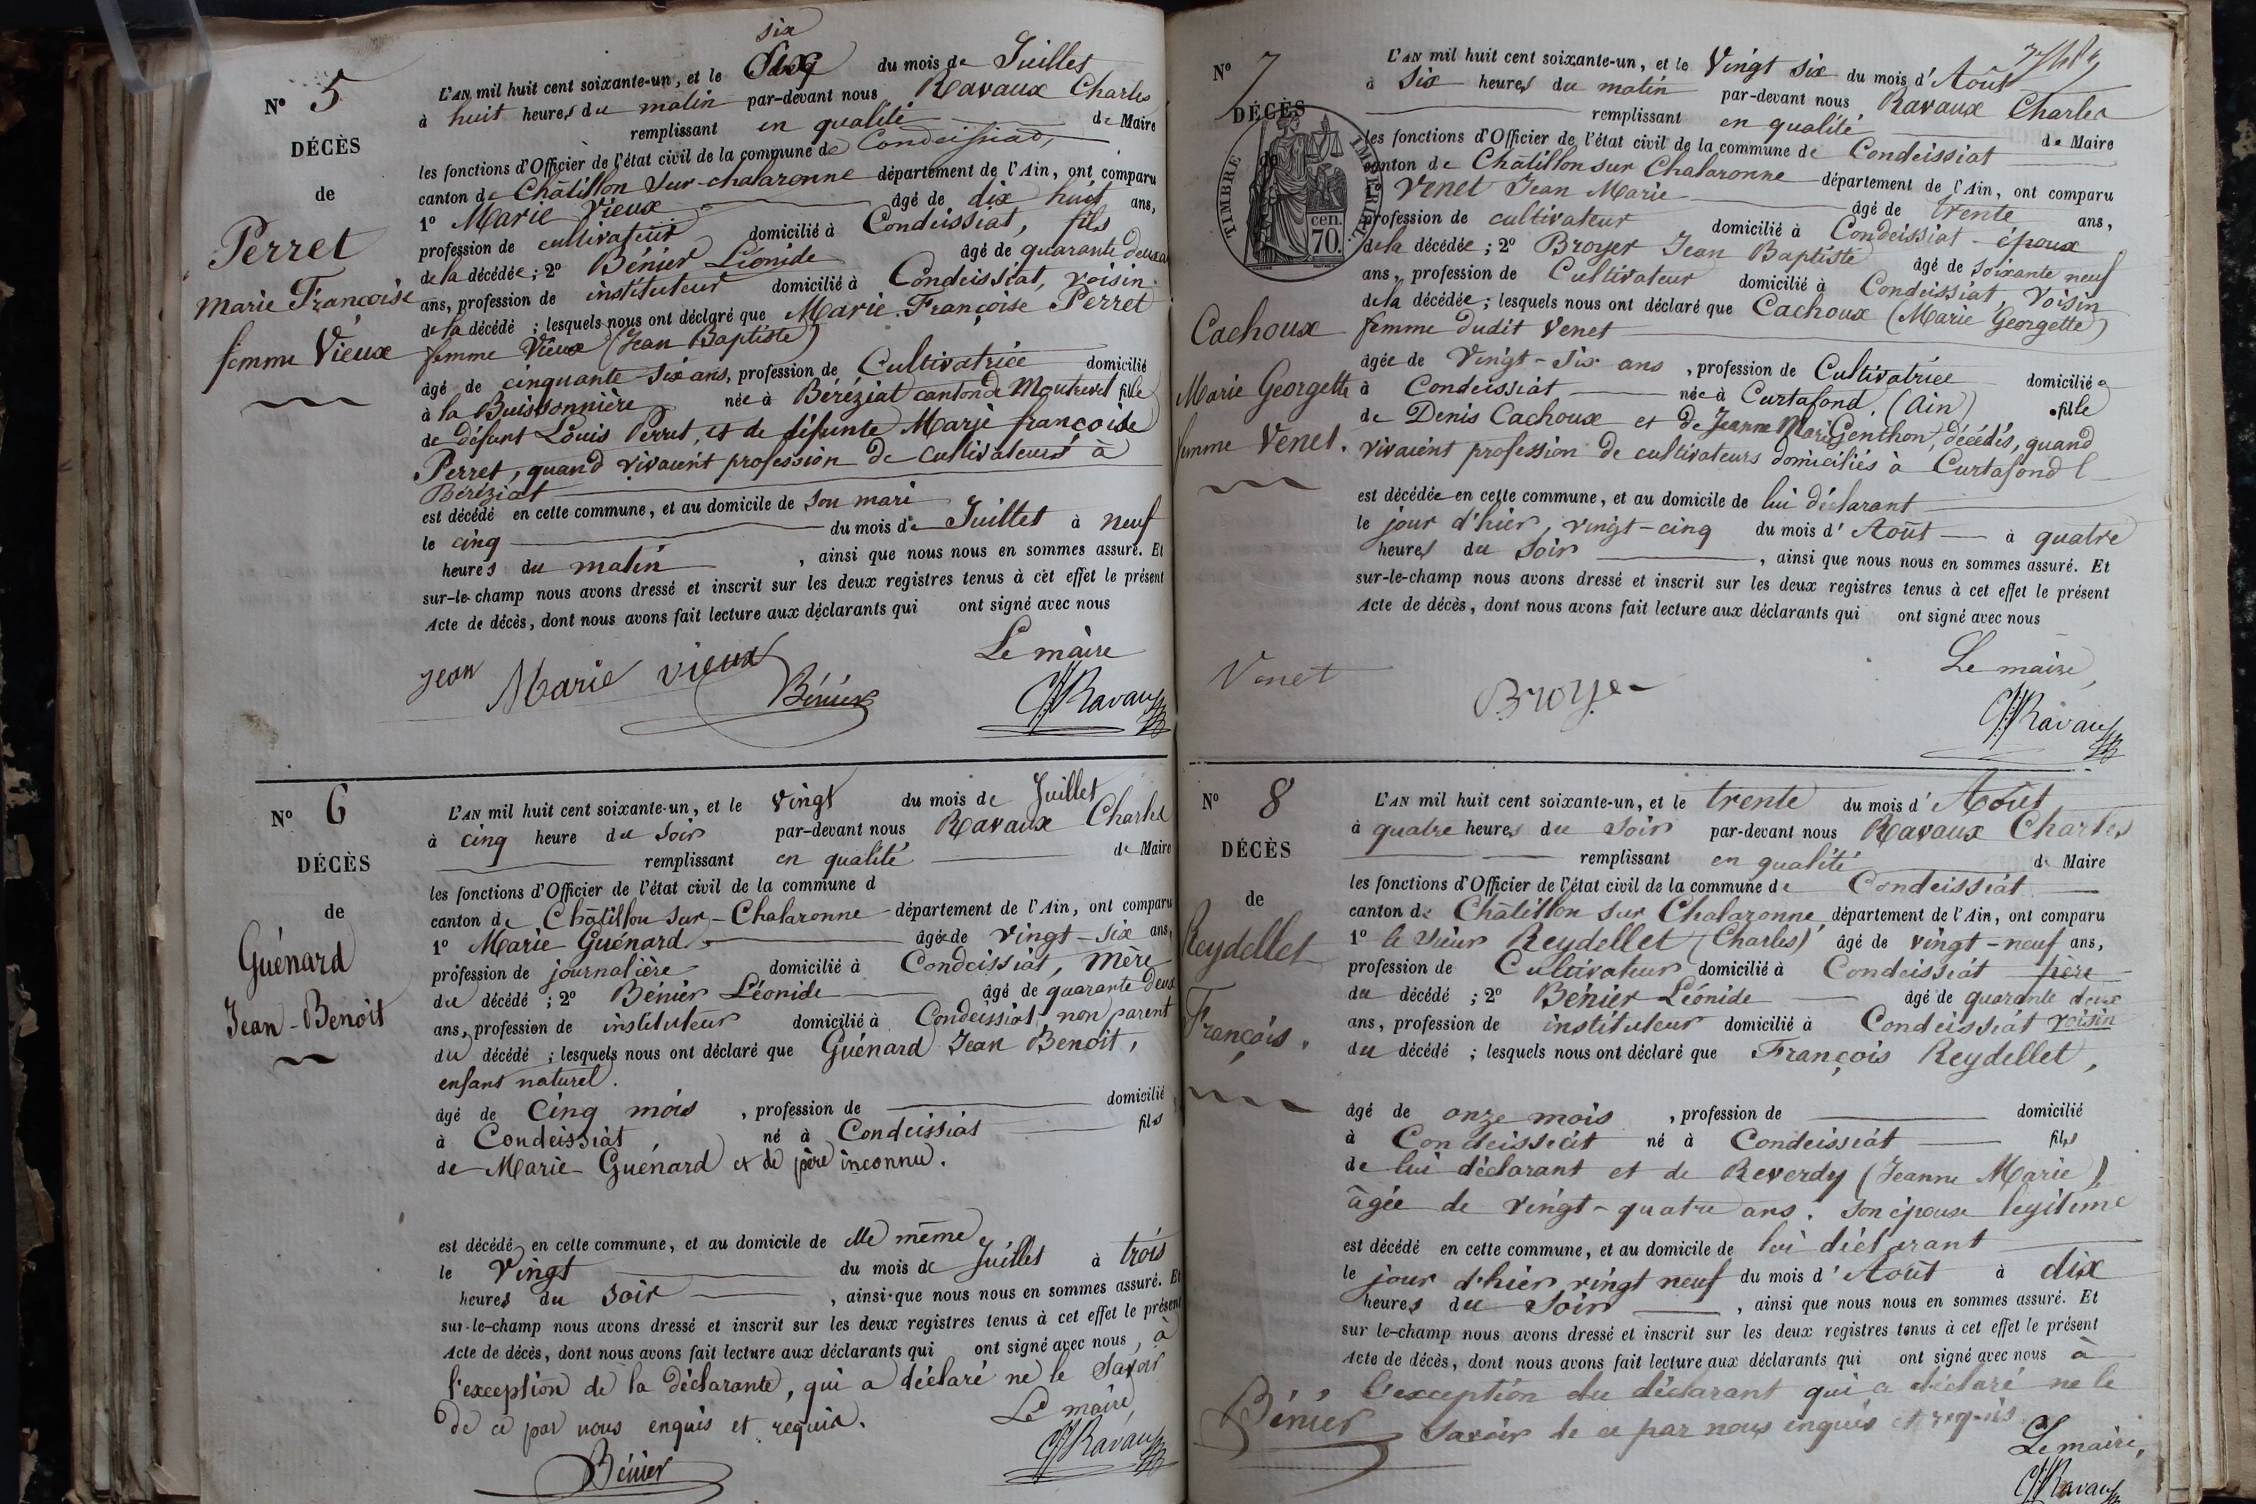 N° 5
DÉCÈS
de
Perret
Marie Françoise
femme Vieux
six
L'AN mil huit cent soixante-un, et le six du mois de Juillet
à huit heures du matin par-devant nous Ravaux Charles
remplissant en qualité de Maire
les fonctions d'Officier de l'état civil de la commune de Condeissiat,
canton de Châtillon sur-chalaronne département de l'Ain, ont comparu
1° Marie Vieux âgé de dix huit ans,
profession de cultivateur domicilié à Condeissiat, fils
de la décédée ; 2° Bénier Léonide âgé de quarante deux
ans, profession de instituteur domicilié à Condeissiat, voisin
de la décédé ; lesquels nous ont déclaré que Marie Françoise Perret
femme Vieux (Jean Baptiste)
âgé de cinquante-six ans, profession de Cultivatrice domicilié
à la Buissonnière née à Béréziat canton de Montrevel fille
de défunt Louis Perret, et de défunte Marie françoise
Perret, quand vivaient profession de cultivateurs à
Béréziat
est décédé en cette commune, et au domicile de son mari
le cinq du mois de Juillet à neuf
heures du matin , ainsi que nous nous en sommes assuré. Et
sur-le-champ nous avons dressé et inscrit sur les deux registres tenus à cet effet le présent
Acte de décès, dont nous avons fait lecture aux déclarants qui ont signé avec nous
Le maire
Jean Marie vieux
Bénier
Ravaux
N° 6
DÉCÈS
de
Guénard
Jean-Benoît
L'AN mil huit cent soixante-un, et le vingt du mois de Juillet
à cinq heure du soir par-devant nous Ravaux Charles
remplissant en qualité de Maire
les fonctions d'Officier de l'état civil de la commune d
canton de Châtillon sur-Chalaronne département de l'Ain, ont comparu
1° Marie Guénard âgée de vingt-six ans,
profession de journalière domicilié à Condeissiat, mère
du décédé ; 2° Bénier Léonide âgé de quarante deux
ans, profession de instituteur domicilié à Condeissiat, non parent
du décédé ; lesquels nous ont déclaré que Guénard Jean Benoît,
enfant naturel.
âgé de Cinq mois , profession de domicilié
à Condeissiat, né à Condeissiat fils
de Marie Guénard et de père inconnu.
est décédé en cette commune, et au domicile de elle même
le vingt du mois de Juillet à trois
heures du soir , ainsi que nous nous en sommes assuré. Et
sur-le-champ nous avons dressé et inscrit sur les deux registres tenus à cet effet le présent
Acte de décès, dont nous avons fait lecture aux déclarants qui ont signé avec nous, à
l'exception de la déclarante, qui a déclaré ne le savoir
de ce par nous enquis et requis.
Le maire,
Bénier
Ravaux
N° 7
DÉCÈS
de
TIMBRE IMPÉRIAL
70 cen.
Cachoux
Marie Georgette
femme Venet.
L'AN mil huit cent soixante-un, et le vingt six du mois d'Août
à six heures du matin par-devant nous Ravaux Charles
remplissant en qualité de Maire
les fonctions d'Officier de l'état civil de la commune de Condeissiat
canton de Châtillon sur Chalaronne département de l'Ain, ont comparu
1° Venet Jean Marie âgé de trente ans,
profession de cultivateur domicilié à Condeissiat époux
de la décédée ; 2° Broyer Jean Baptiste âgé de soixante neuf
ans, profession de Cultivateur domicilié à Condeissiat, voisin
de la décédée ; lesquels nous ont déclaré que Cachoux (Marie Georgette)
femme dudit Venet
âgée de vingt-six ans , profession de Cultivatrice domicilié
à Condeissiat née à Curtafond, (Ain) fille
de Denis Cachoux et de Jeanne Marie Genthon, décédés, quand
vivaient profession de cultivateurs domiciliés à Curtafond
est décédée en cette commune, et au domicile de lui déclarant
le jour d'hier, vingt-cinq du mois d'Août à quatre
heures du soir , ainsi que nous nous en sommes assuré. Et
sur-le-champ nous avons dressé et inscrit sur les deux registres tenus à cet effet le présent
Acte de décès, dont nous avons fait lecture aux déclarants qui ont signé avec nous
Le maire,
Venet
Broyer
Ravaux
N° 8
DÉCÈS
de
Reydellet
François.
L'AN mil huit cent soixante-un, et le trente du mois d'Août
à quatre heures du soir par-devant nous Ravaux Charles
remplissant en qualité de Maire
les fonctions d'Officier de l'état civil de la commune de Condeissiat
canton de Châtillon sur Chalaronne département de l'Ain, ont comparu
1° le sieur Reydellet (Charles) âgé de vingt-neuf ans,
profession de Cultivateur domicilié à Condeissiat père
du décédé ; 2° Bénier Léonide âgé de quarante deux
ans, profession de instituteur domicilié à Condeissiat voisin
du décédé ; lesquels nous ont déclaré que François Reydellet,
âgé de onze mois , profession de domicilié
à Condeissiat né à Condeissiat fils
de lui déclarant et de Reverdy (Jeanne Marie)
âgée de vingt-quatre ans. son épouse légitime
est décédé en cette commune, et au domicile de lui déclarant
le jour d'hier vingt neuf du mois d'Août à dix
heures du soir , ainsi que nous nous en sommes assuré. Et
sur le-champ nous avons dressé et inscrit sur les deux registres tenus à cet effet le présent
Acte de décès, dont nous avons fait lecture aux déclarants qui ont signé avec nous à
l'exception du déclarant qui a déclaré ne le
savoir de ce par nous enquis et requis
Bénier
Le maire,
Ravaux